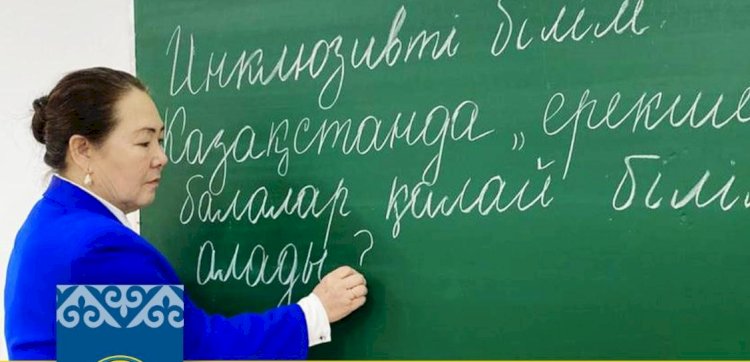 Инклюзивті білім
Қазақстанда „ ерекше
балалар қалай білім
алады?